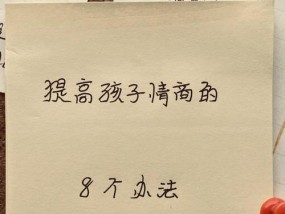 提高孩子情商的
8个办法